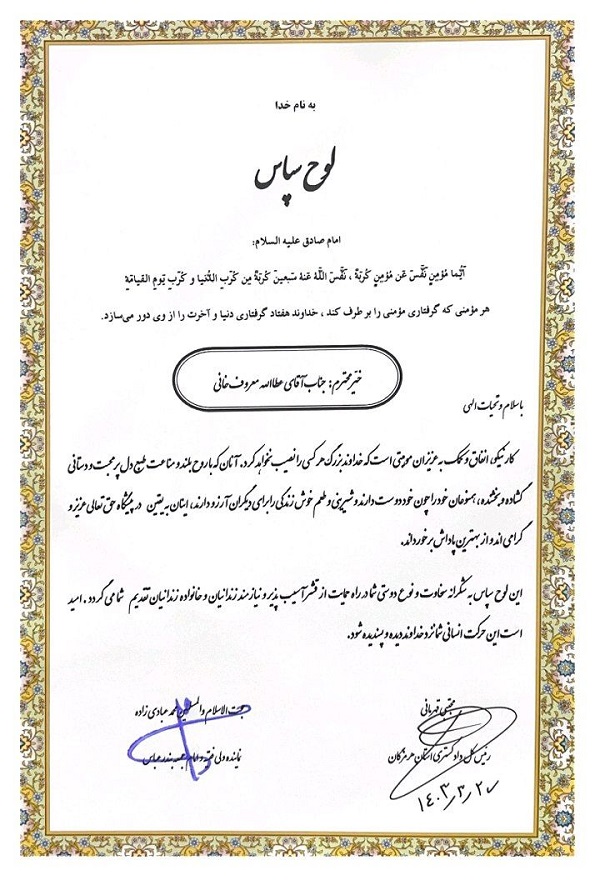 به نام خدا
لوح سپاس
امام صادق علیه السلام:
أیُّما مُؤمِنٍ نَفَّسَ عَن مُؤمِنٍ کُربَةً ، نَفَّسَ اللّهُ عَنهُ سَبعینَ کُربَةً مِن کُرَبِ الدُّنیا و کُرَبِ یَومِ القیامَةِ
هر مؤمنی که گرفتاری مؤمنی را بر طرف کند ، خداوند هفتاد گرفتاری دنیا و آخرت را از وی دور می‌سازد.
خیّر محترم: جناب آقای عطاالله معروف خانی
با سلام و تحیات الهی
کار نیکو، انفاق و کمک به عزیزان موهبتی است که خداوند بزرگ هر کسی را نصیب نخواهد کرد. آنان که با روح بلند و مناعت طبع، دل پر محبت و دستانی
گشاده و بخشنده، همنوعان خود را چون خود دوست دارند و شیرینی و طعم خوش زندگی را برای دیگران آرزو دارند، اینان به یقین در پیشگاه حق تعالی عزیز و
گرامی اند و از بهترین پاداش برخوردارند.
این لوح سپاس به شکرانه سخاوت و نوع دوستی شما در راه حمایت از قشر آسیب پذیر و نیازمند زندانیان و خانواده زندانیان تقدیم شما می گردد . امید
است این حرکت انسانی شما نزد خداوند دیده و پسندیده شود.
مجتبی قهرمانی
رئیس کل دادگستری استان هرمزگان
۱۴۰۳/۳/۲۰
حجت الاسلام والمسلمین محمد عبادی زاده
نماینده ولی فقیه و امام جمعه بندرعباس